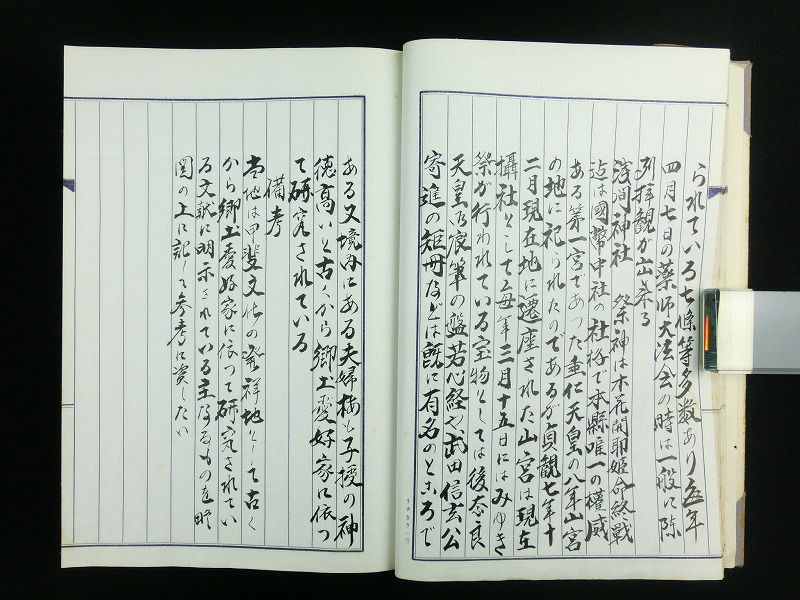 られている七條等多数あり毎年
四月七日の薬師大法会の時は一般に陳
列拝観が出来る
浅間神社　祭神は木花開耶姫命終戦
迄は國幣中社の社格で本縣唯一の權威
ある第一宮であった垂仁天皇の八年山宮
の地に祀られたのであるが貞観七年十
二月現在地に遷座された山宮は現在
攝社として毎年三月十五日にはみゆき
祭が行われている宝物としては後奈良
天皇乃宸筆の盤若心経や武田信玄公
寄進の短冊などは既に有名のところで
ある又境内にある夫婦梅も子授の神
徳高いと古くから郷土愛好家に依つ
て研究されている
備考
当地は甲斐文化の発祥地として古く
から郷土愛好家に依つて研究されてい
る文献に明示されている主なるものを略
図の上に記して参考に資したい